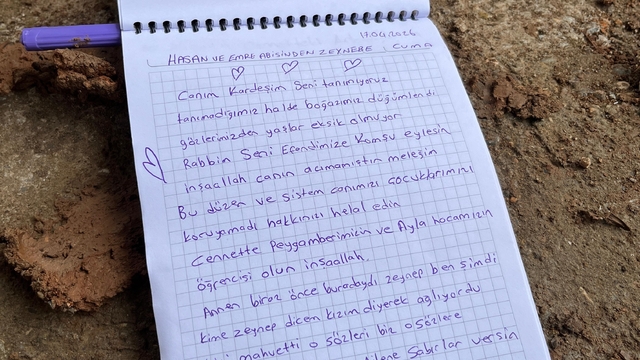 17.04.2026
HASAN VE EMRE ABİSİNDEN ZEYNEBE : CUMA
Canım Kardeşim Seni tanımıyoruz
tanımadığımız halde boğazımız düğümlendi
gözlerimizden yaşlar eksik olmuyor
Rabbin Seni Efendimize Komşu eylesin
inşaallah canın acımamıştır meleğim
Bu düzen ve sistem canımızı çocuklarımızı
koruyamadı hakkınızı helal edin
Cennette Peygamberimizin ve Ayla hocamızın
öğrencisi olun inşaallah.
Annen biraz önce buradaydı zeynep ben şimdi
kime zeynep dicem kızım diyerek ağlıyordu
mahvetti o sözleri biz o sözlere
Sabırlar versin